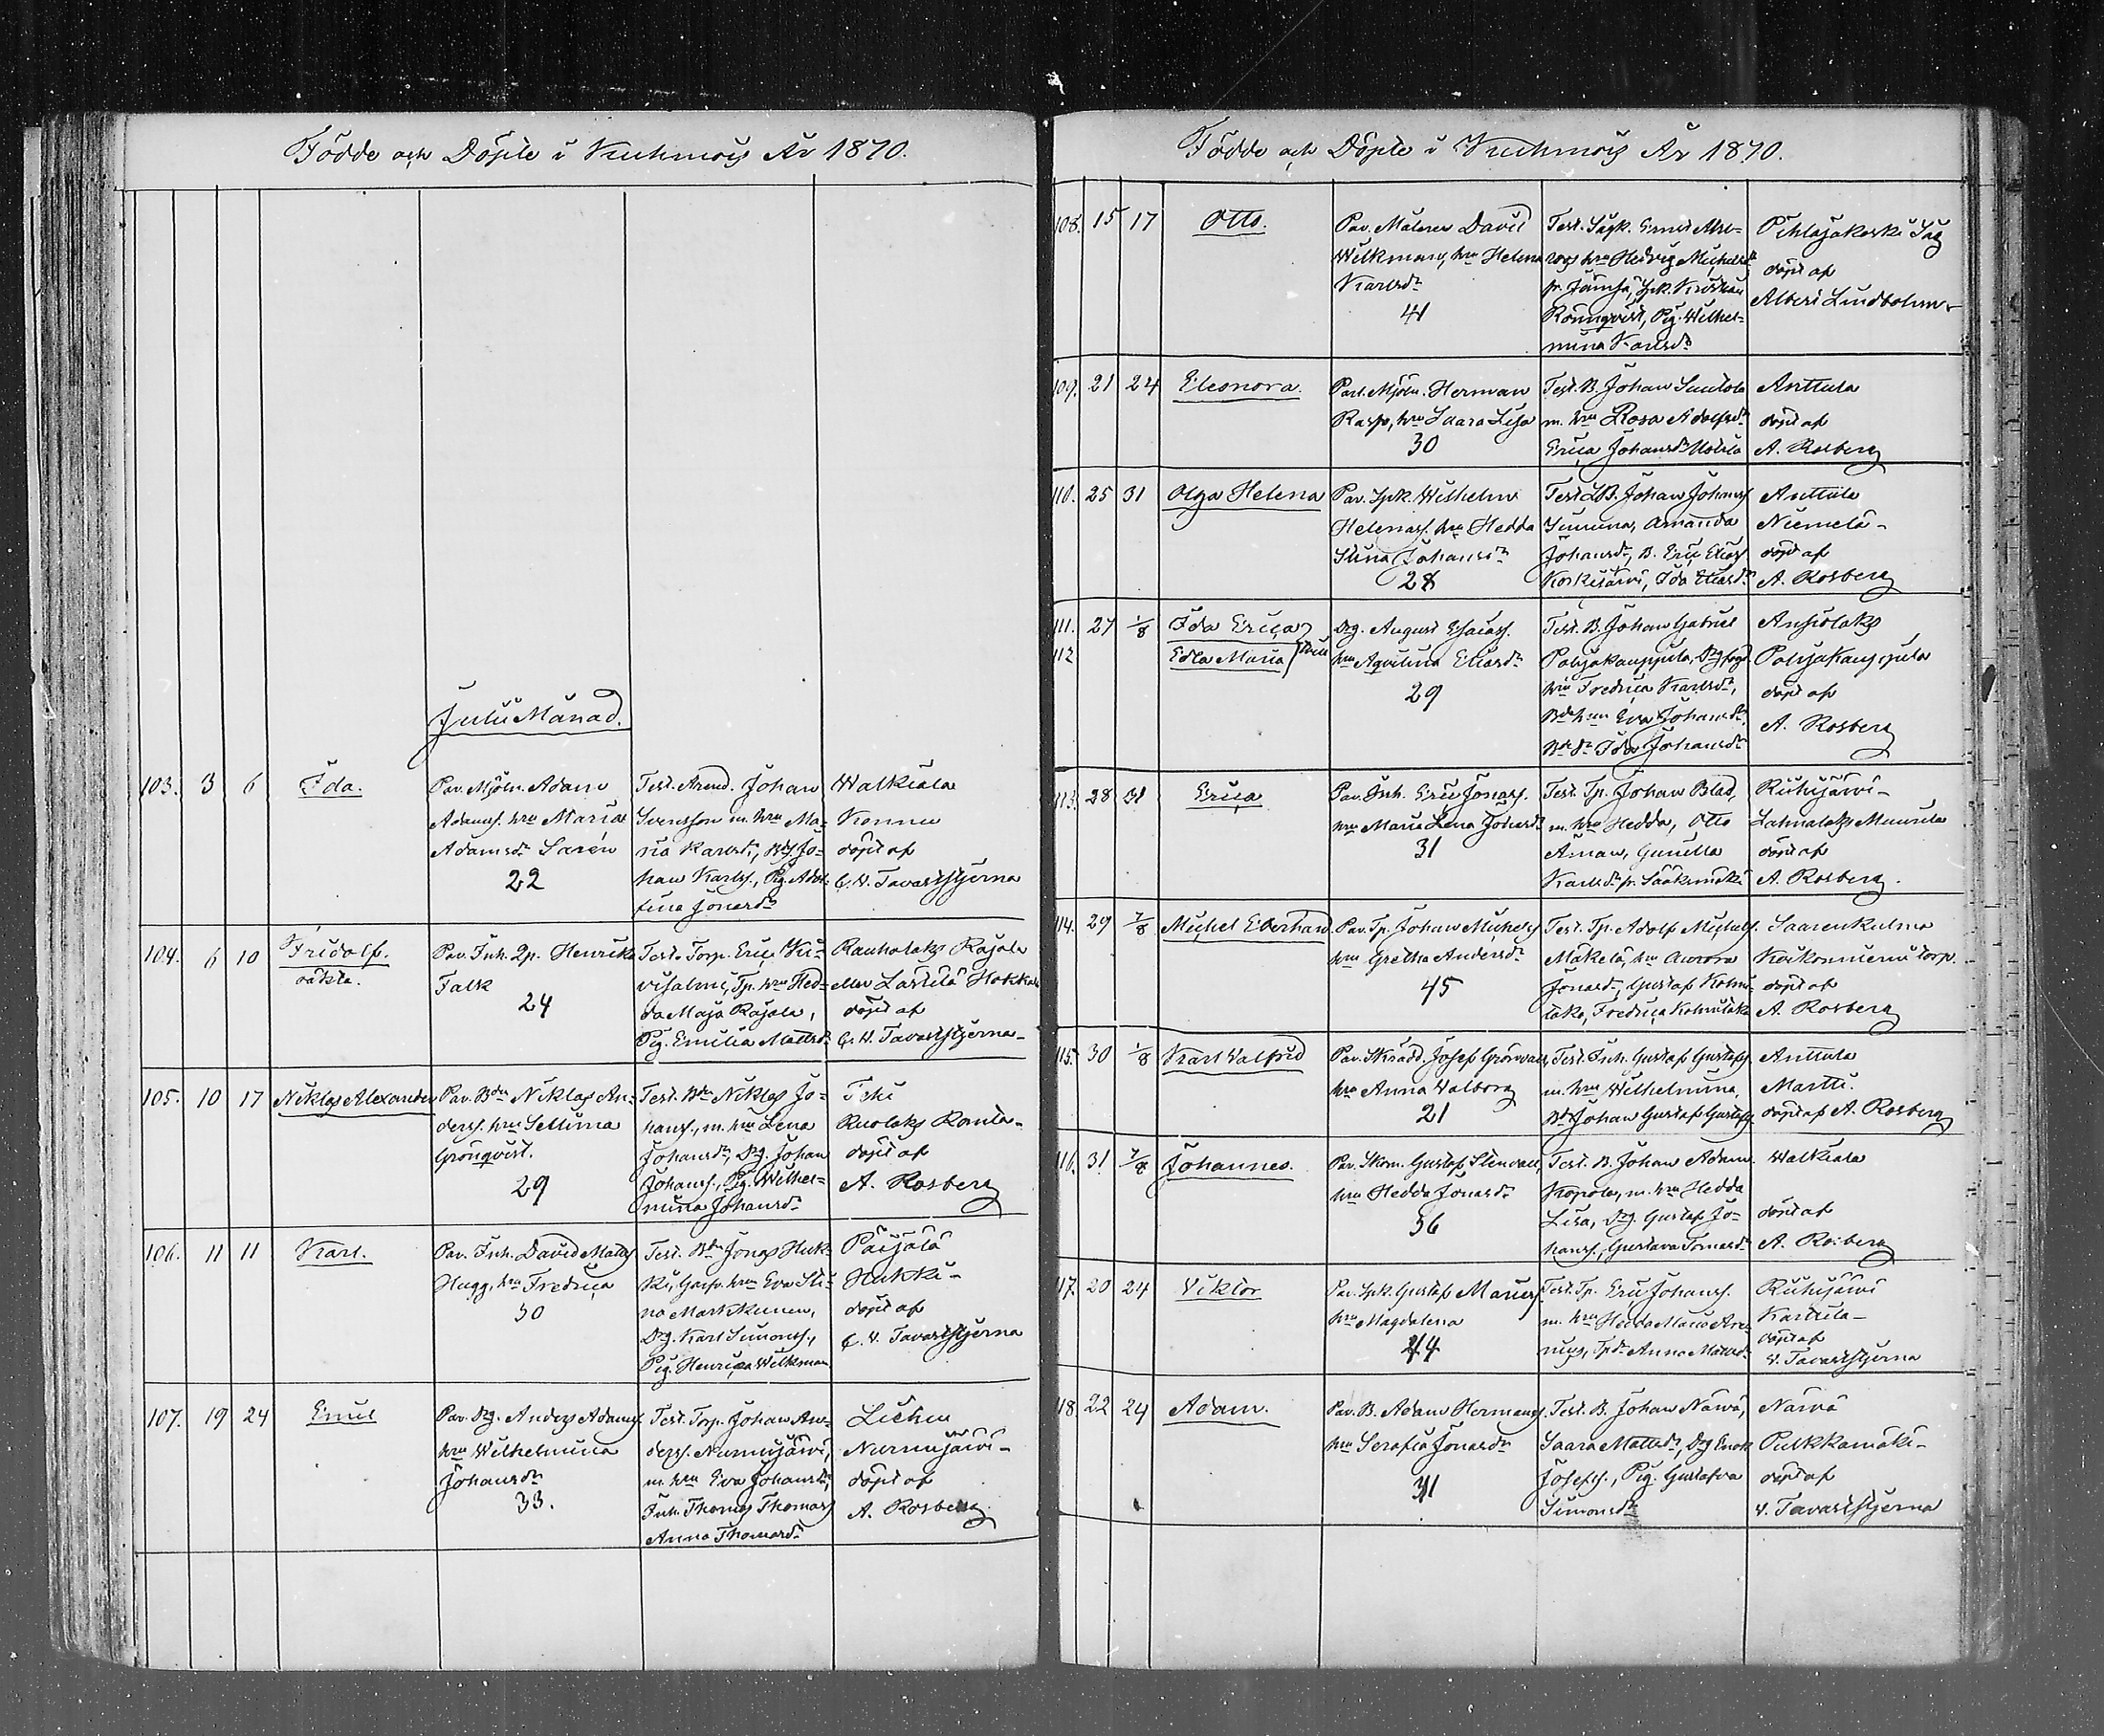 Födde och Döpte i Kuhmois År 1870.
Julii Månad.
103. 3 6 Ida.
Par. Mjöln. Adam
Adamss. hru Maria
Adamsdr Sarén
22
Test. Arend. Johan
Svensson m. hru Ma-
ria Karlsdr, Jo-
han Karlss., Pig. Adol-
fina Jonasdr
Walkiala
Konnu
döpt af
C. V. Tavaststjerna
104. 6 10 Fridolf.
oäkta.
Par. Inh. Qp. Henrika
Falk
24
Test. Torp. Eric Ki-
visalmi, Tp. hru Hed-
da Maja Rajala,
Pig. Emilia Mattsdr
Rauholaks Rajala
eller Lastila
döpt af
C. V. Tavaststjerna
105. 10 17 Niklas Alexander
Par. Bdn Niklas An-
derss. hru Sellima
Grönqvist.
29
Test. Bdn Niklas Jo-
hanss., m. hru Lena
Johansdr, Drg. Johan
Johanss., Pig. Wilhel-
mina Johansdr
Tehi
Ruolaks
döpt af
A. Rosberg
106. 11 11 Karl.
Par. Inh. David Matts
Hugg, hru Fredrica
30
Test. Bdn Jonas Huk-
ki, hru Eva Sti-
na Markkunen,
Drg. Karl Simonss.,
Pig. Henrica Wilkman
Päijälä
Hukki-
döpt af
C. V. Tavaststjerna
107. 19 24 Emil
Par. Drg. Anders Adamss
hru Wilhelmina
Johansdr
33.
Test. Torp. Johan An-
derss. Nurmijärvi,
m. hru Eva Johansdr,
Inh. Thomas Thomass
Anna Thomasdr
Lästu
Nurmijärvi-
döpt af
A. Rosberg
Födde och Döpte i Kuhmois År 1870.
108. 15 17 Otto.
Par. Målaren David
Wilkman, hru Helena
Karlsdr
41
Test. Sågk. Ernst
hru Hedvig Michelsdr
fr. Jämsä, Spk. Kristian
Rönnqvist, Pig. Wilhel-
mina Karlsdr
Pihlajakoski Såg
döpt af
Albert Lindbohm
109. 21 24 Eleonora.
Par. Mjöln. Herman
Rasp, hru Saara Lisa
30
Test. B. Johan Suutola
m. hru Rosa Adolfsdr
Erica Johansdr
Anttula
döpt af
A. Rosberg
110. 25 31 Olga Helena
Par. Spk. Wilhelm
Helenass. hru Hedda
Stina Johansdr
28
Test. LB. Johan Johanss
Amanda
Johansdr, B. Eric Eliass
Koskisärvi, Ida Eliasdr
Anttula
Niemelä-
döpt af
A. Rosberg
111. 27 1/8 Ida Erica
112 Edla Maria
Drg. August Esaiass.
hru Aqvilina Eliasdr
29
Test. B. Johan Gabriel
Pohjakauppila, Drg
hru Fredrica Karlsdr,
Eva Johansdr
Ida Johansdr
Ansiolaks
Pohjakauppila
döpt af
A. Rosberg
113. 28 31 Erica
Par. Inh. Eric Jonass.
hru Maria Lena Jonasdr
31
Test. Tp. Johan Blad,
m. hru Hedda, Otto
Aman, Gunilla
Karlsdr fr. Sääksmäki
Riihijärvi-
Lahnalaks Maunula
döpt af
A. Rosberg.
114. 29 7/8 Michel Eberhard
Par. Tp. Johan Michelss
hru Gretha Andersdr
45
Test. Tp. Adolf Michelss.
Mäkelä, hru Aurora
Jonasdr, Gustaf Kolmi-
laks, Fredrica Kolmilaks
Saarenkulma
Koikonniemi torp.
döpt af
A. Rosberg
115. 30 1/8 Karl Valfrid
Par. Skrädd. Josef Grönvall
hru Anna Walborg
21
Test. Inh. Gustaf Gustafss
m. hru Wilhelmina,
Johan Gustaf Gustafss
Anttula
Martti.
döpt af A. Rosberg
116. 31 7/8 Johannes.
Par. Skom. Gustaf Stenvall,
hru Hedda Jonasdr
36
Test. B. Johan Adam
Kopola, m. hru Hedda
Lisa, Drg. Gustaf Jo-
hanss., Gustava Jonasdr
Walkiala
döpt af
A. Rosberg
117. 20 24 Viktor
Par. Spk. Gustaf Mariess
hru Magdalena
44
Test. Tp. Eric Johanss.
m. hru Hedda Maria
Anna Mattsdr
Riihijärvi
Karttila-
döpt af
V. Tavaststjerna
118. 22 24 Adam.
Par. B. Adam Hermanss
hru Serafia Jonasdr
31
Test. B. Johan Närvä,
Saara Mattsdr, Drg Enok
Josefss., Pig. Gustafva
Simonsdr
Närvä
Pulkkamäki-
döpt af
V. Tavaststjerna